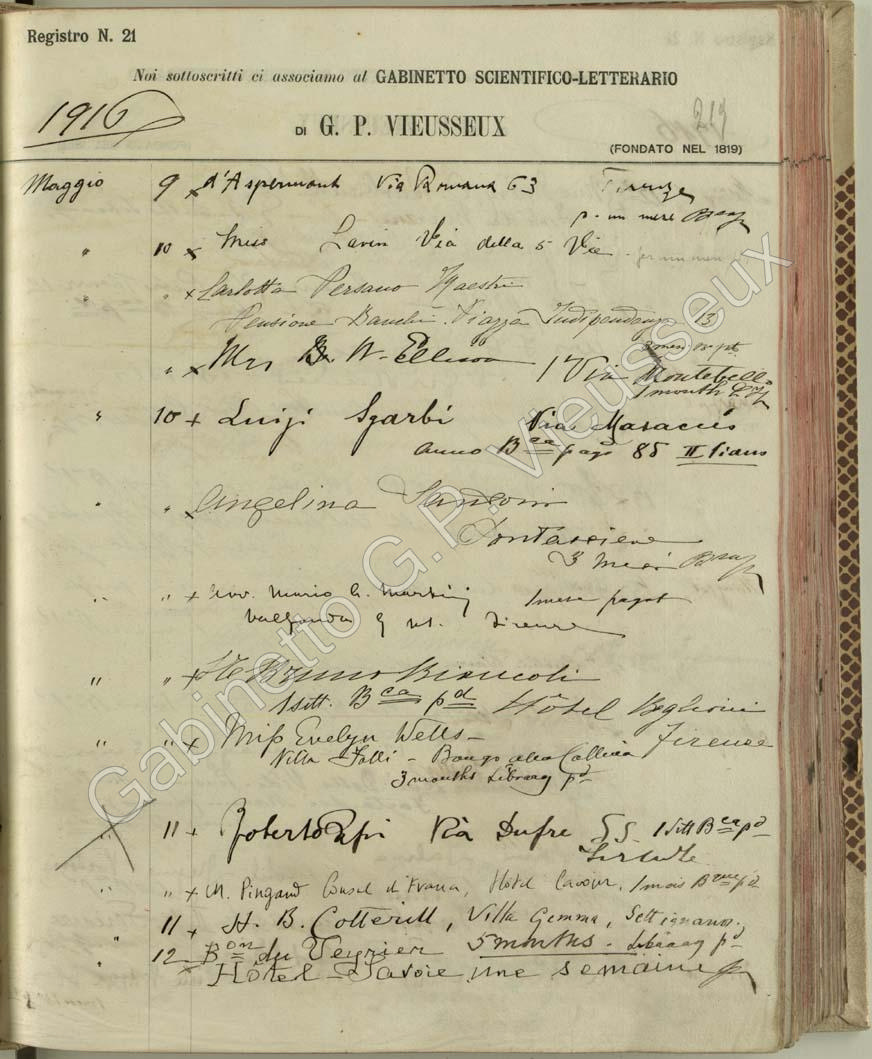 Registro N. 21
Noi sottoscritti ci associamo al GABINETTO SCIENTIFICO-LETTERARIO
1916
219
DI G. P. VIEUSSEUX
(FONDATO NEL 1819)
Maggio 9 x d'Aspermont Via Romana 63 Firenze
p. un mese
" 10 x Miss Lavin Via della 5 Vie - per un mese
" " x Carlotta Persano Maestri
Pensione Banchi. Piazza Indipendenza 13
" x Mrs B. W. Ellison 1 Via Montebello
3 mesi
1 month
" 10 x Luigi Sgarbi Via Masaccio
anno Bca pago 85 II piano
" " x Angelina
Pontassieve
3 mesi
" " x Avv. Mario G. Martini 1 mese pagat
Valfonda 9 Firenze
" " x Bruno Biancoli
1 sett. Bca pd Hôtel Baglioni
" " x Miss Evelyn Wells - Firenze
Villa Galli - Bagno alla
3 months Library pd
" 11 x Roberto Papi Via Dufre 55. 1 sett Bca pd
" " x M. Pingaud Consul d. France, Hôtel Cavour, 1 mois pd
11 x H. B. Cotterill, Villa Gemma, Settignano.
5 months - Library pd
" 12 x Bon du Teyrier
Hôtel Savoie une semaine
Gabinetto G.P. Vieusseux